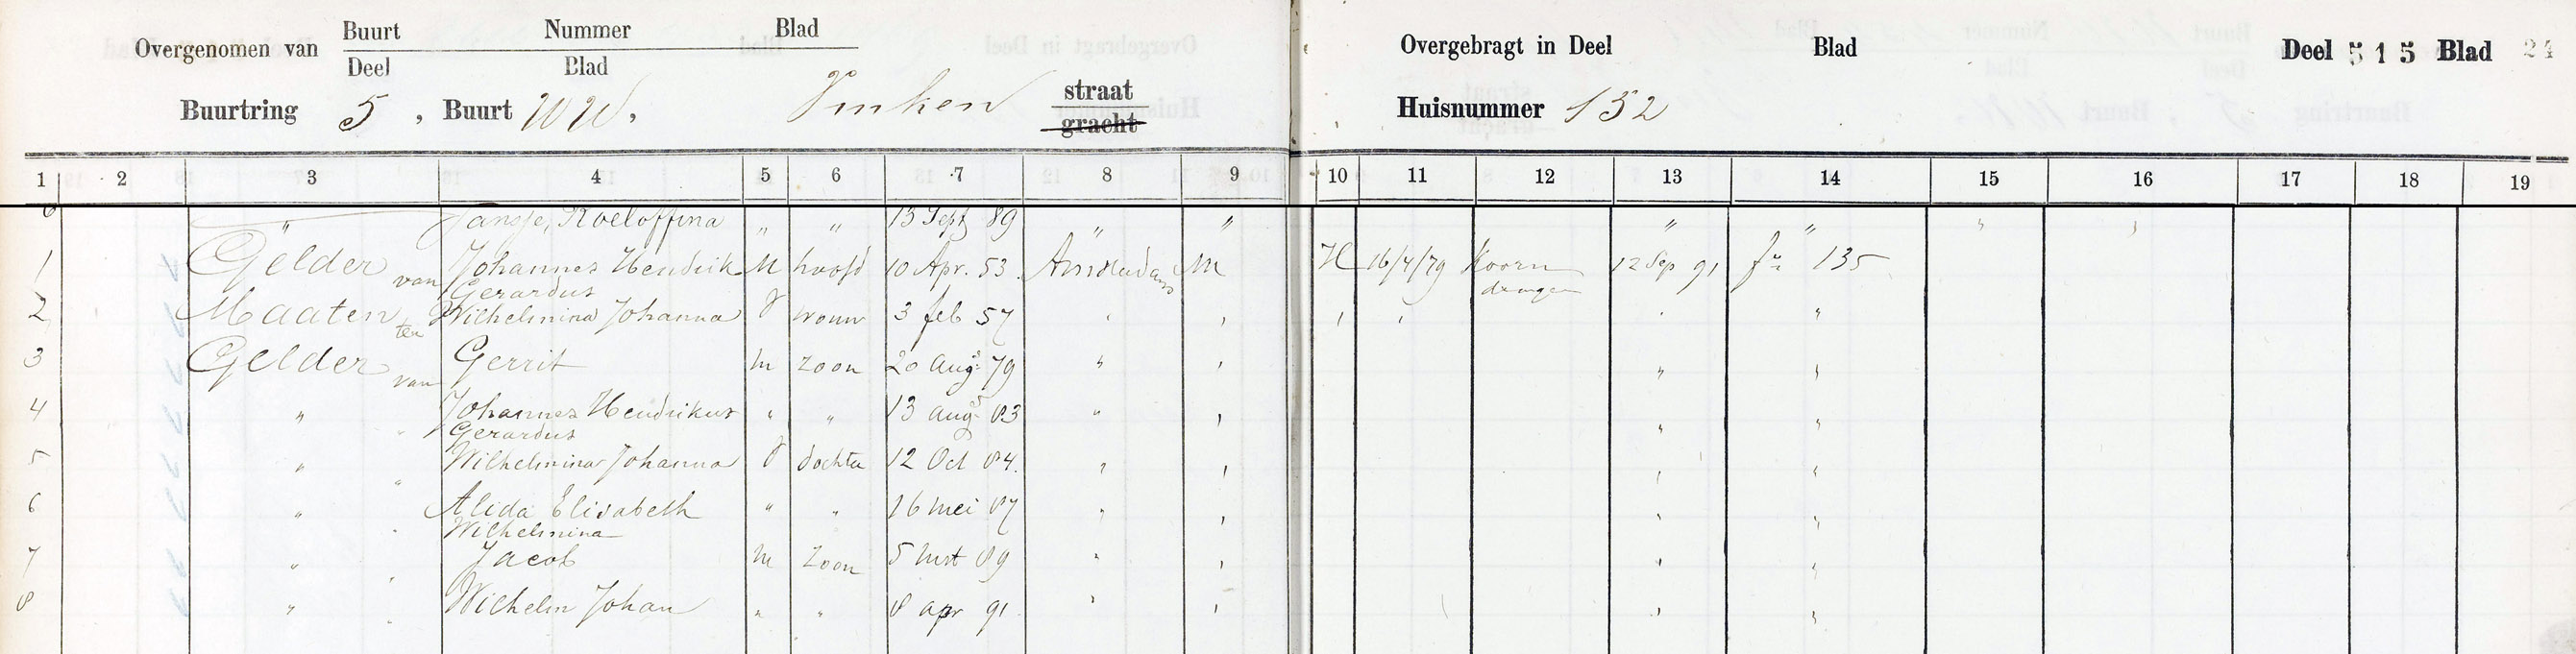 Overgenomen van Buurt Nummer Blad
Deel Blad
Buurtring 5, Buurt WW, Vinken straat
gracht
Overgebragt in Deel Blad Deel 515 Blad 24
Huisnummer 152
1 2 3 4 5 6 7 8 9 10 11 12 13 14 15 16 17 18 19
" Jansje, Roeloffina " " 13 Sept 89 " " " " " "
1 Gelder van Johannes Hendrik M hoofd 10 Apr. 53. Amsterdam M H 16/4/79 Koorn 12 Sep 91 135
Gerardus dragen
2 Maaten ten Wilhelmina Johanna V vrouw 3 feb 57 " " " " " "
3 Gelder van Gerrit m zoon 20 Aug: 79 " " " "
4 " " Johannes Hendrikus " " 13 augs 83 " " " "
Gerardus
5 " " Wilhelmina Johanna V dochter 12 Oct 84. " " " "
6 " " Alida Elisabeth " " 16 mei 87 " " " "
Wilhelmina
7 " " Jacob m zoon 5 mrt 89 " " " "
8 " " Wilhelm Johan " " 8 apr 91 " " " "